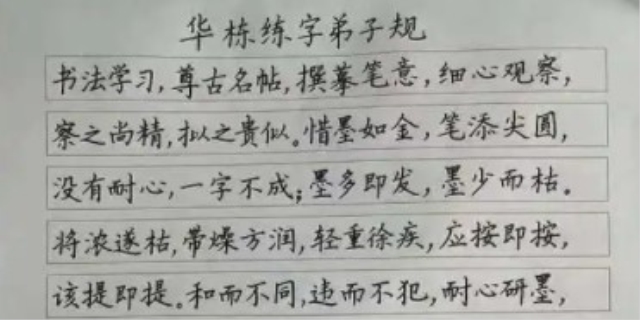 华栋练字弟子规
书法学习,尊古名帖,撰摹笔意,细心观察,
察之尚精,拟之贵似。惜墨如金,笔添尖圆,
没有耐心,一字不成;墨多即发,墨少而枯。
将浓遂枯,带燥方润,轻重徐疾,应按即按,
该提即提。和而不同,违而不犯,耐心研墨,